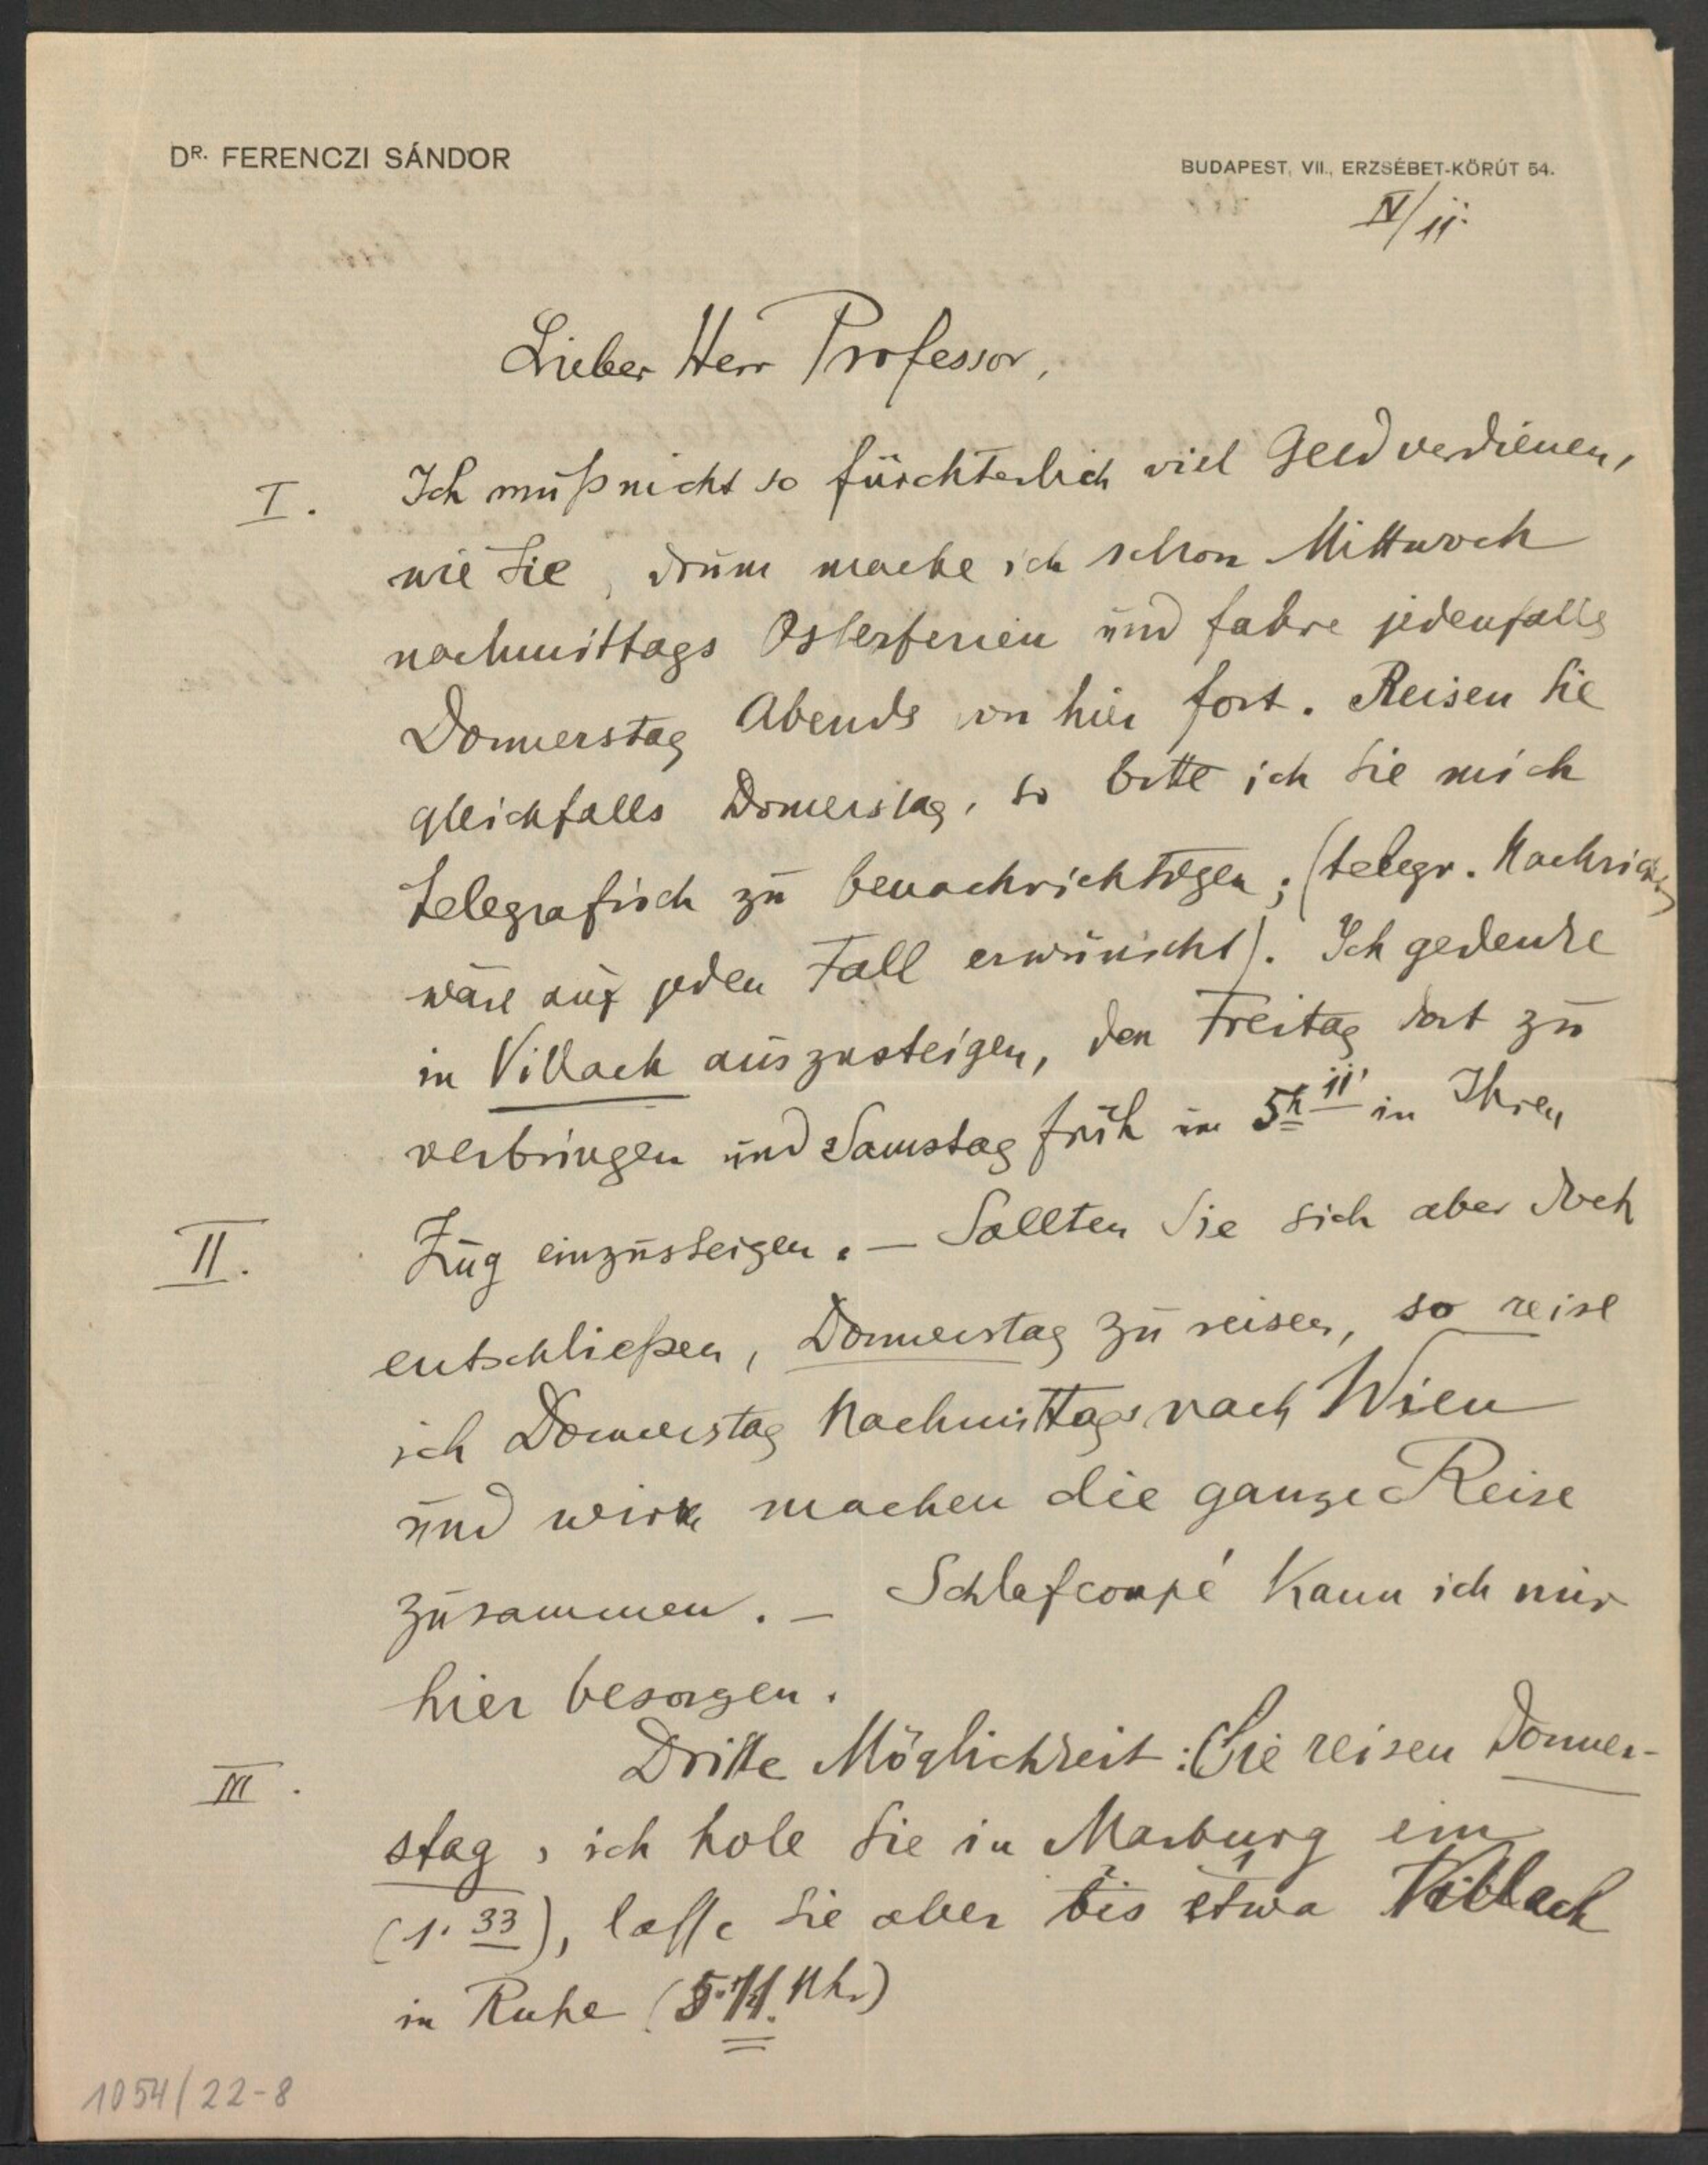 DR. FERENCZI SÁNDOR
BUDAPEST, VII., ERZSÉBET-KÖRÚT 54.
IV/11.
Lieber Herr Professor,
I. Ich muß nicht so fürchterlich viel Geld verdienen,
wie Sie, drum mache ich schon Mittwoch
nachmittags Osterferien und fahre jedenfalls
Donnerstag Abends von hier fort. Reisen Sie
gleichfalls Donnerstag, so bitte ich Sie mich
telegrafisch zu benachrichtigen; (telegr. Nachricht
wäre auf jeden Fall erwünscht). Ich gedenke
in Villach auszusteigen, den Freitag dort zu
verbringen und Samstag früh um 5h 11' in Ihren
II. Zug einzusteigen. – Sollten Sie sich aber doch
entschließen, Donnerstag zu reisen, so reise
ich Donnerstag Nachmittags nach Wien
und wir machen die ganze Reise
zusammen. – Schlafcoupé kann ich mir
hier besorgen.
III. Dritte Möglichkeit: Sie reisen Donner-
stag, ich hole Sie in Marburg ein
(1.33), lasse Sie aber bis etwa Villach
in Ruhe (5.11. Uhr)
1054/22-8